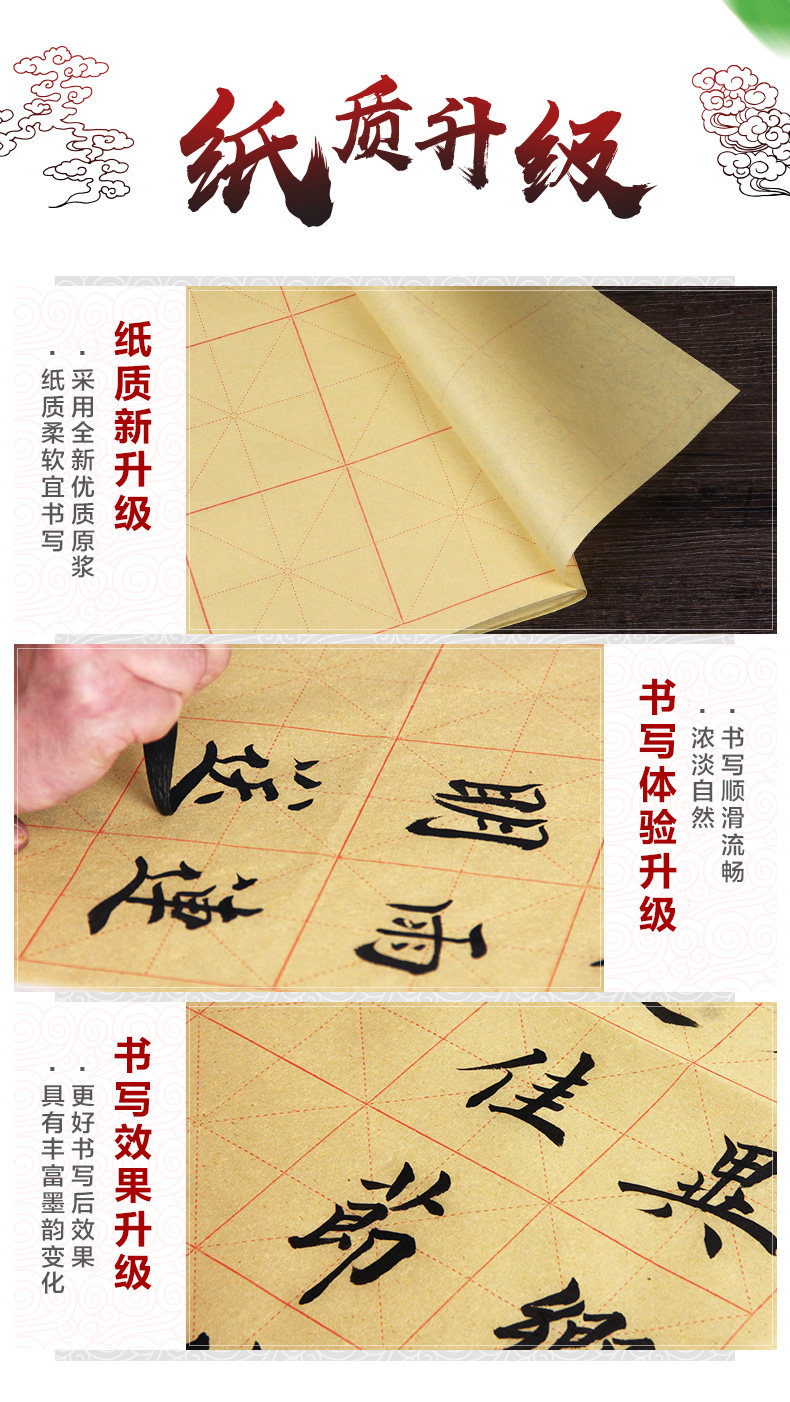 纸质升级
纸质新升级
· 采用全新优质原浆
· 纸质柔软宜书写
明
雨
送
连
· 书写顺滑流畅
· 浓淡自然
书写体验升级
书写效果升级
· 更好书写后效果
· 具有丰富墨韵变化
佳
節
異
鄉